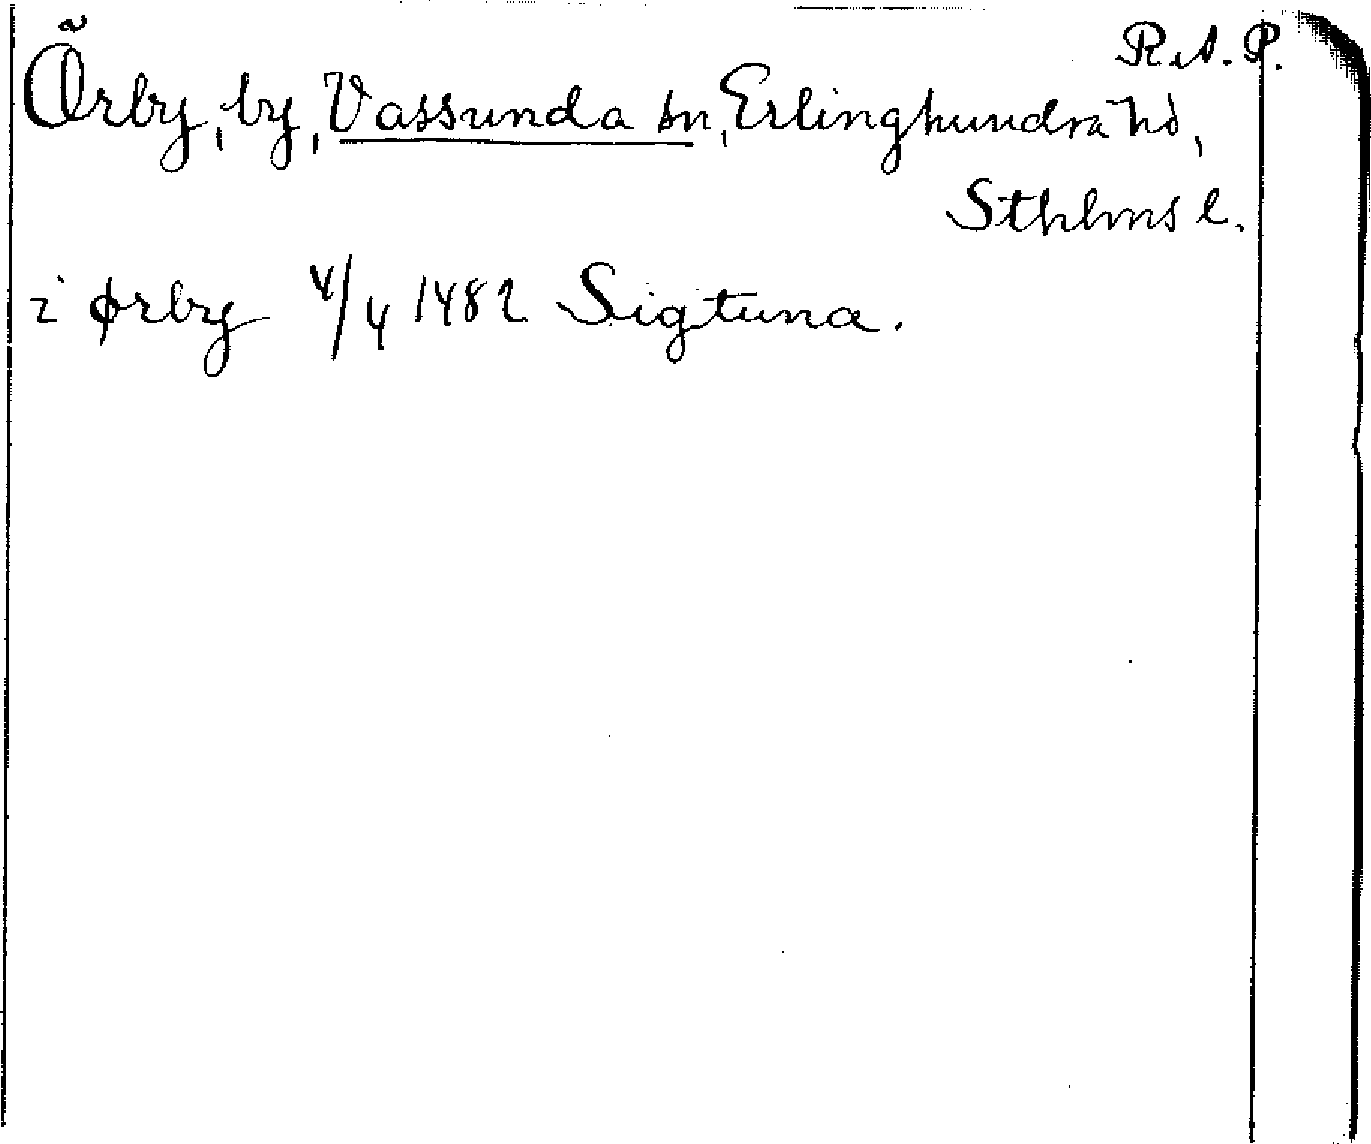 R.A.P.
Örby, by, Vassunda sn, Erlinghundra hd,
Sthlms l.
i ørby 4/4 1482 Sigtuna.